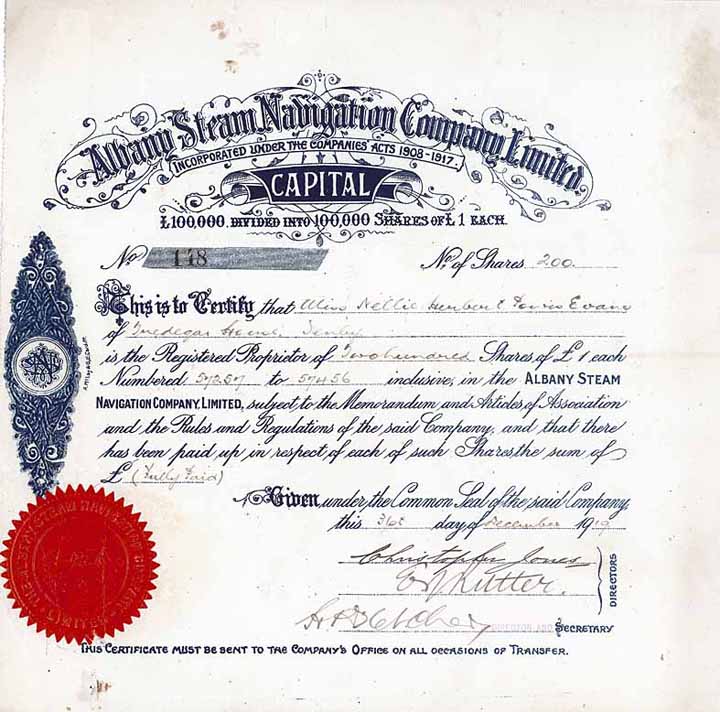 Albany Steam Navigation Company Limited.
INCORPORATED UNDER THE COMPANIES ACTS 1908-1917.
CAPITAL
£100,000. DIVIDED INTO 100,000 SHARES OF £1 EACH.
No 148 No. of Shares 200
This is to Certify that Miss Nellie Evans
of Tredegar House, Tenby
is the Registered Proprietor of Two hundred Shares of £1 each
Numbered 57257 to 57456 inclusive, in the ALBANY STEAM
NAVIGATION COMPANY, LIMITED, subject to the Memorandum and Articles of Association
and the Rules and Regulations of the said Company, and that there
has been paid up in respect of each of such Shares, the sum of
£ (Fully Paid)
Given, under the Common Seal of the said Company,
this 31st day of December 1919
Christopher Jones
Rutter.
DIRECTORS
DIRECTOR AND SECRETARY
THIS CERTIFICATE MUST BE SENT TO THE COMPANY'S OFFICE ON ALL OCCASIONS OF TRANSFER.